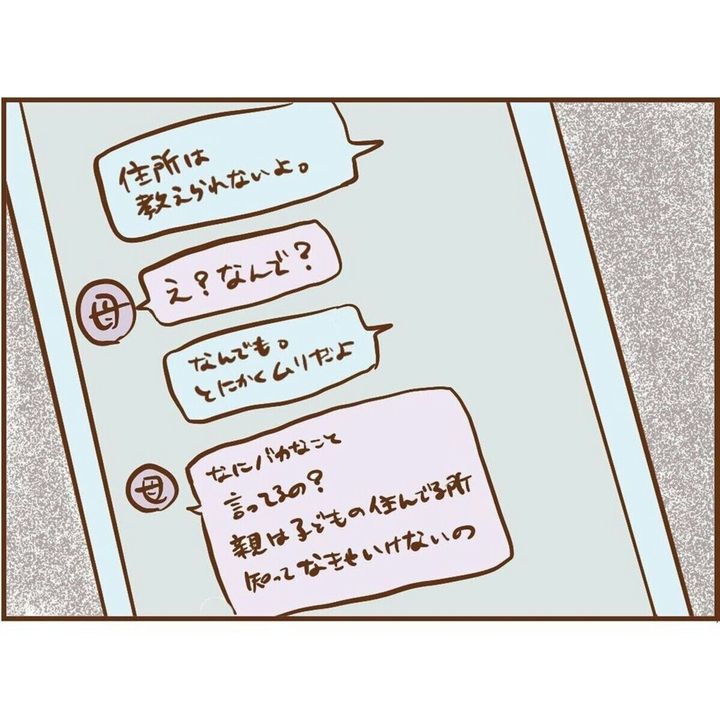 住所は
教えられないよ。
え？なんで？
母
なんでも。
とにかくムリだよ
なにバカなこと
母
言ってるの？
親は子どもの住んでる所
知ってなきゃいけないの